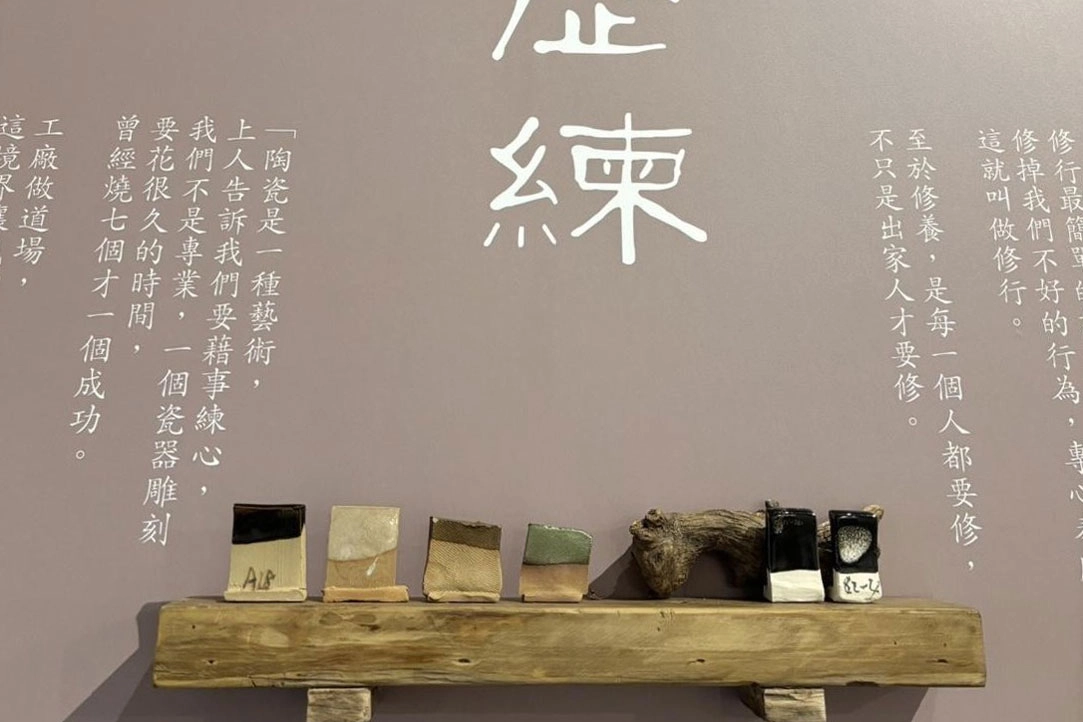 歷
練
修行最簡單的
修掉我們不好的行為，專心
這就叫做修行。
至於修養，是每一個人都要修，
不只是出家人才要修。
「陶瓷是一種藝術，
上人告訴我們要藉事練心，
我們不是專業，一個瓷器雕刻
要花很久的時間，
曾經燒七個才一個成功。
工廠做道場，
這境界
A18